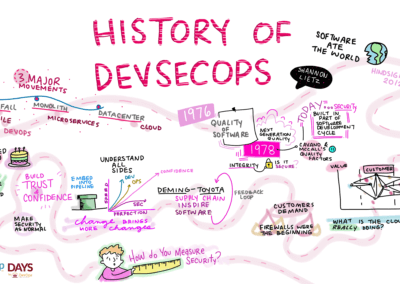 HISTORY OF
DEVSECOPS
SOFTWARE
ATE
THE WORLD
SHANNON
LIETZ
HINDSIG
3 MAJOR
MOVEMENTS
FALL
MONOLITH
DATACENTER
MICROSERVICES
CLOUD
DEVOPS
1976
QUALITY
OF
SOFTWARE
NEXT
GENERATION
QUALITY
1978
INTEGRITY
IS IT
SECURE
TODAY...
SECURITY
BUILT IN
PART OF
SOFTWARE
DEVELOPMENT
CYCLE
CAVANO &
MCCALL'S
QUALITY
FACTORS
BUILD
TRUST
&
CONFIDENCE
MAKE
SECURITY
AS NORMAL
EMBED
INTO
PIPELINE
UNDERSTAND
ALL
SIDES
DEV
OPS
SEC
SPEED
CONFIDENCE
PERFECTION
change BRINGS
MORE changes
DEMING → TOYOTA
SUPPLY CHAIN
INSURE
SOFTWARE
FEEDBACK
LOOP
CUSTOMERS
DEMAND
FIREWALLS WERE
THE BEGINNING
VALUE
CUSTOMER
WHAT IS THE CLO
REALLY DOING?
How do You MEASURE
SECURITY?
DAYS